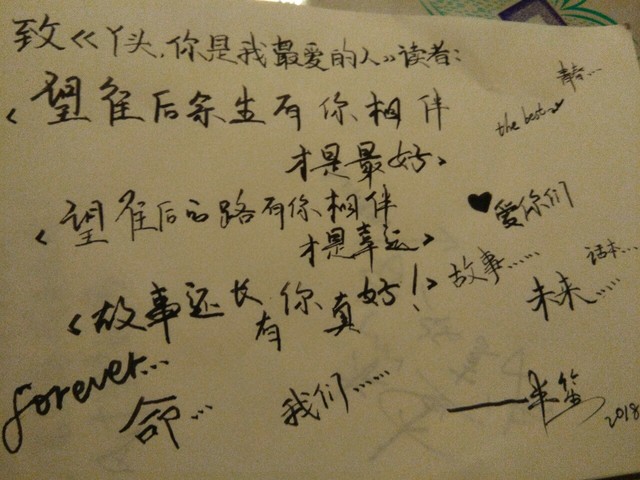 致《丫头,你是我最爱的人》读者:
青春...
<望往后余生有你相伴
the best
才是最好>
<望往后的路有你相伴
♥爱你们
才是幸运>
故事......
话本...
<故事还长
有你真好!>
未来.....
forever...
命...
我们......
——米
2018